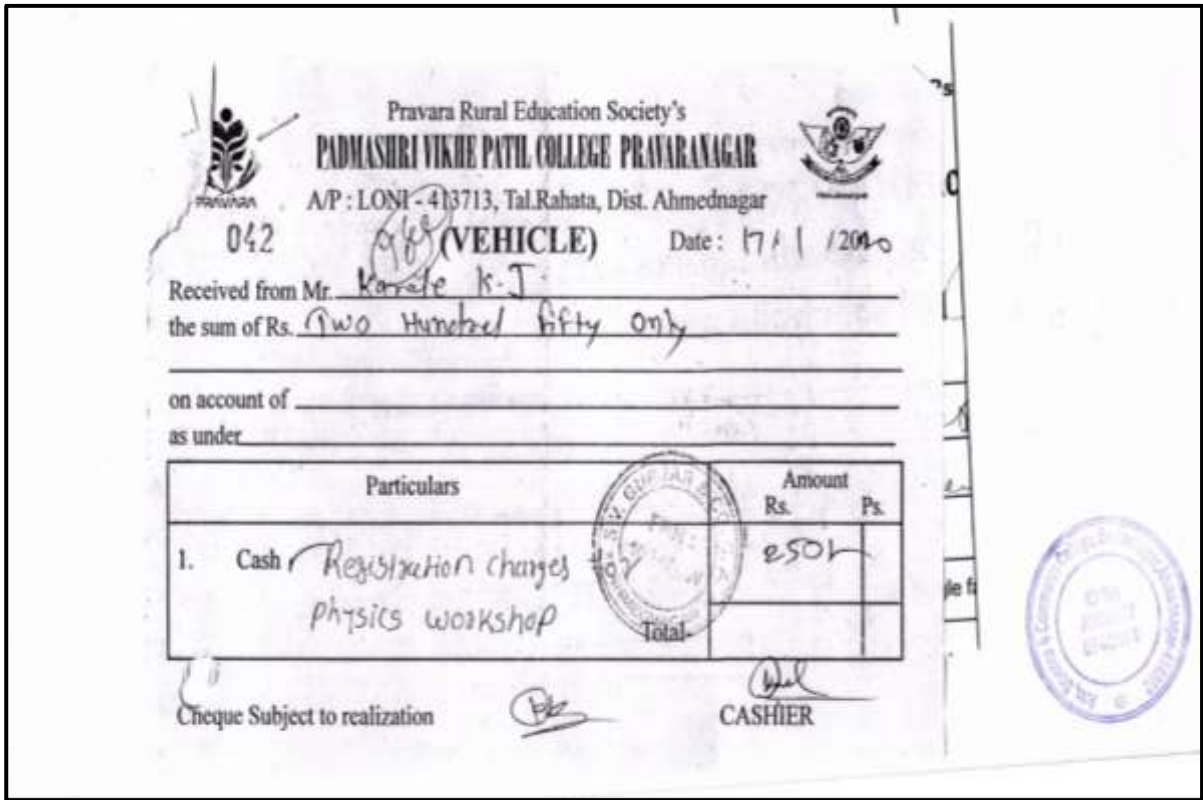 Pravara Rural Education Society's
PADMASHRI VIKHE PATIL COLLEGE PRAVARANAGAR
PRAVARA
A/P : LONI - 413713, Tal.Rahata, Dist. Ahmednagar
042 (VEHICLE) Date : 17/1/2020
Received from Mr. K. J
the sum of Rs. Two Hundred fifty Only
on account of
as under
Particulars Amount
Rs. Ps.
1. Cash Registration charges 250/-
physics workshop
Total-
S.V. GURJAR & CO.
Cheque Subject to realization CASHIER